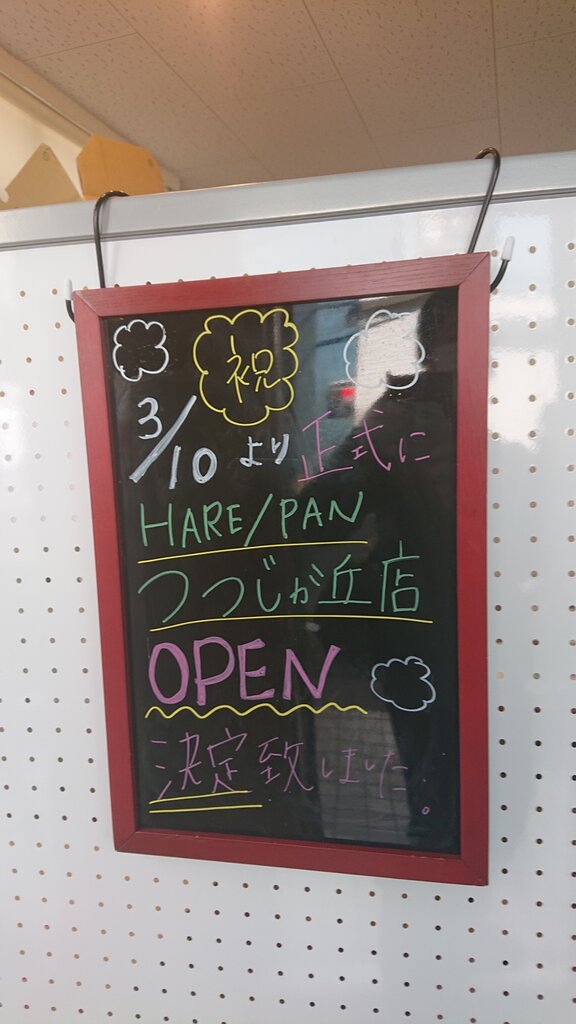 祝
3/10 より 正式に
HARE/PAN
つつじが丘店
OPEN
決定致しました。